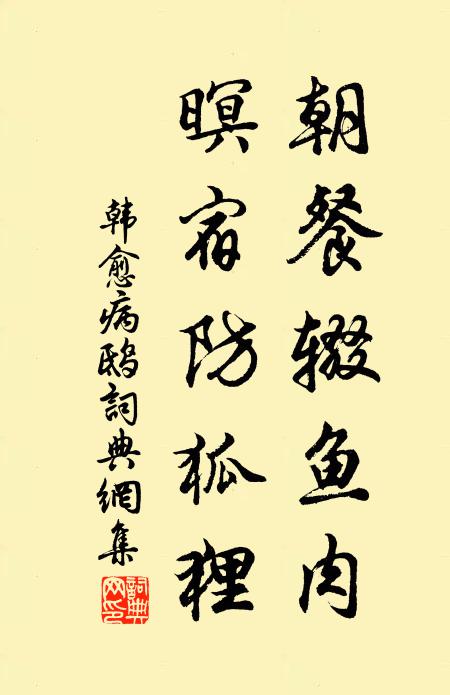 朝餐辍鱼肉
暝宿防狐狸
韩愈病鸱词典網集
詞典網印